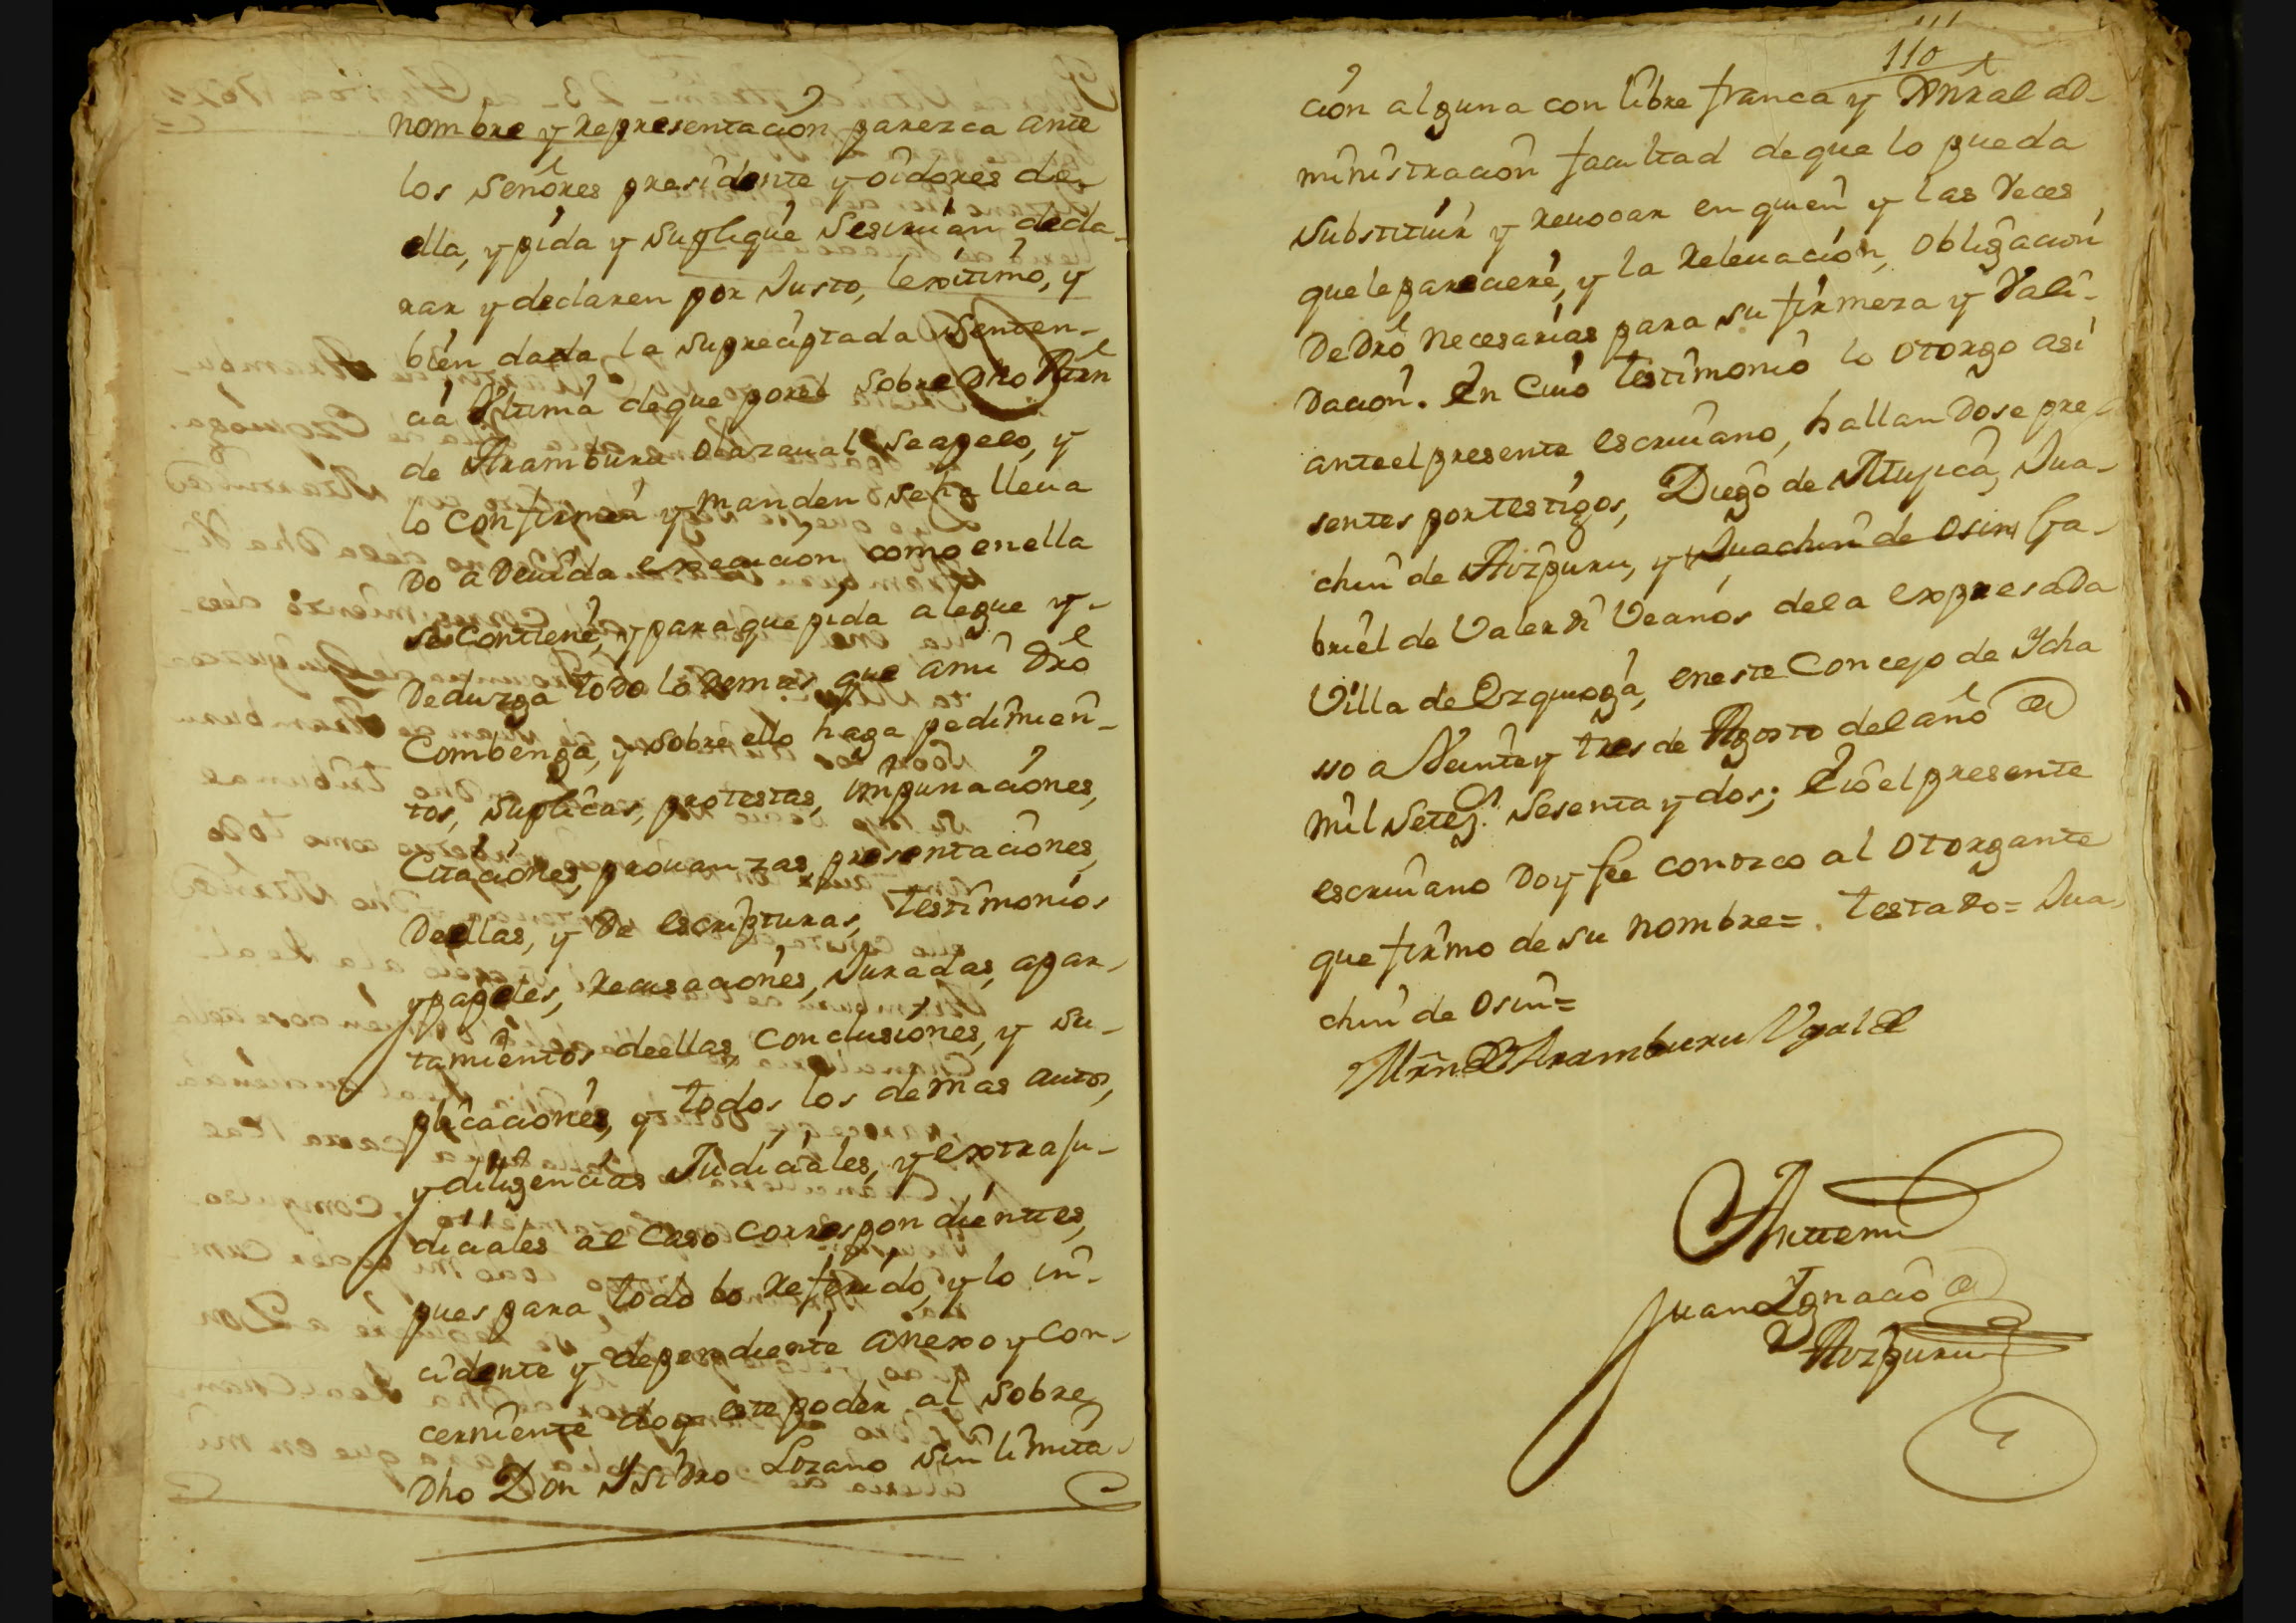 nombre y representación parezca ante
los Señores presidente y oidores de
ella, y pida y suplique Sesiruan decla-
rar y declaren por Justo, lexitimo, y
bien dada la supreciptada senten-
cia Vltima de que por el sobre dho Mrn
de Aramburu Olazaual se apelo, y
lo confirmen y manden se lleua
do a deuida execucion, como en ella
se contiene, y para que pida alegue y
deduzga todo lo demas que a mi dro
Combenga, y sobre ello haga pedimien-
tos, suplicas, protestas, impunaciones,
Citaciones, prouanzas, presentaciones
de ellas, y de escripturas, testimonios
y papeles, recusaciones, Juradas, apar-
tamientos de ellas, Conclusiones, y su-
plicaciones, y todos los demas autos,
y diligencias Judiciales, y extraju-
diciales al Caso correspondientes,
pues para todo lo referido, y lo in-
cidente y dependiente anexo y con-
cerniente doy este poder al sobre
dho Don Ysidro Lozano sin limita-
110
ción alguna con libre franca y Xnral ad-
ministracion facultad de que lo pueda
substituir y reuocar en quien y las Veces
que le pareciere, y la releuación, obligacion
de dro necesarias para su firmeza y Vali-
dacion. En Cuio testimonio lo otorgo asi
ante el presente escriuano, hallandose pre-
sentes por testigos, Diego de Atupica, Jua-
chin de Aizpuru, y Juachin de Osin Ga-
briel de Valerdi Vecinos de la expresada
Villa de Ezquioga, en este Concejo de Ycha
sso a Veinte y tres de Agosto del año de
mil Setez.s Sesenta y dos; E io el presente
escriuano doy fee conozco al otorgante
que firmo de su nombre=. testado= Jua-
chin de Osin=
Mrn de Aramburu Vgalde
Antemi
Juan Ignacio de
Aizpuru